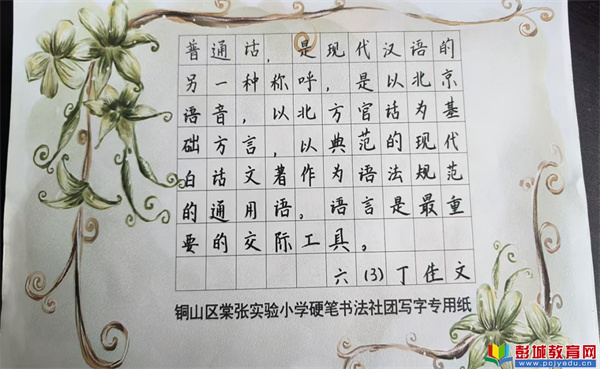 普通话，是现代汉语的
另一种称呼，是以北京
语音，以北方官话为基
础方言，以典范的现代
白话文著作为语法规范
的通用语。语言是最重
要的交际工具。
六(3)丁佳文
铜山区棠张实验小学硬笔书法社团写字专用纸
彭城教育网
www.pcjyedu.cn